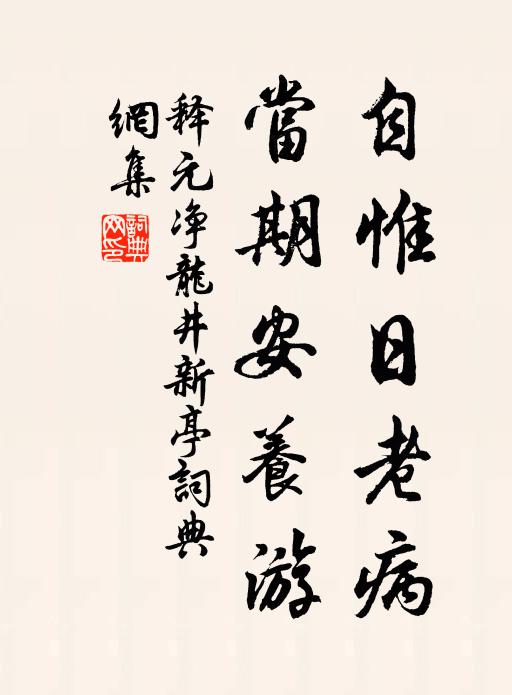 自惟日老病
當期安養游
释元净龍井新亭詞典
網集
詞典
网印